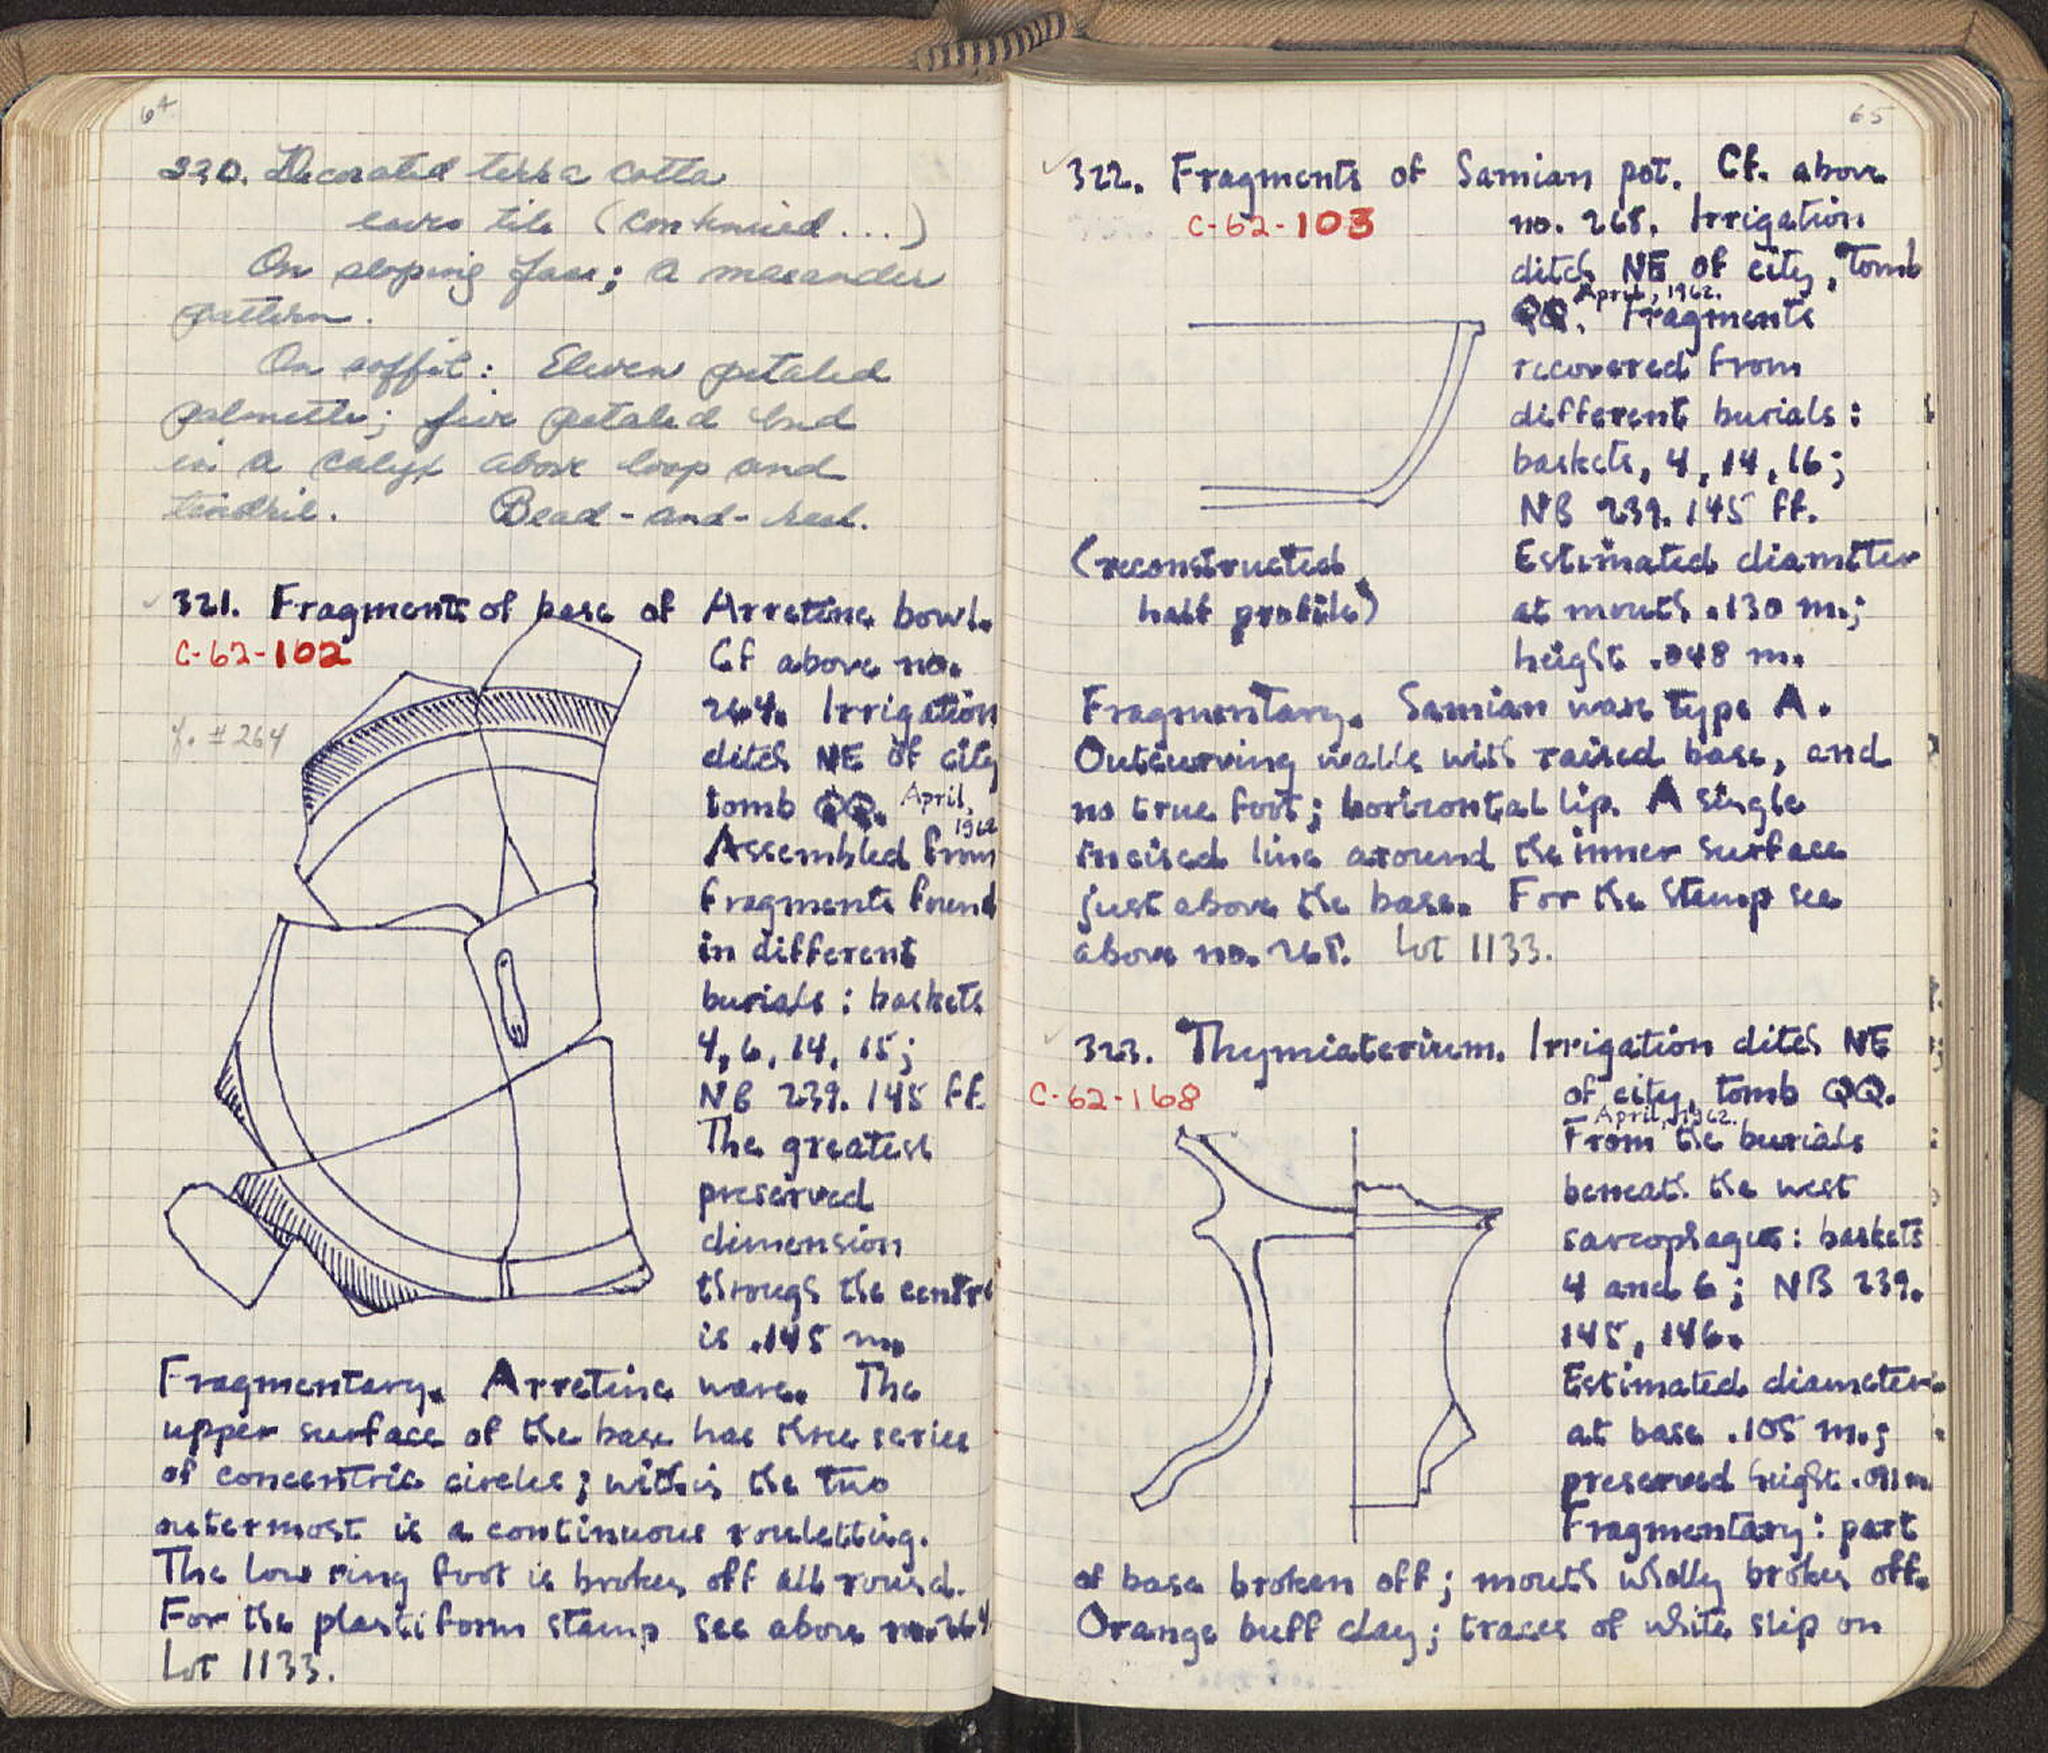 64
320. Decorated terra cotta
eaves tile (continued...)
On sloping face; a maeander
pattern.
On soffit: Eleven petaled
palmette; five petaled bud
in a calyx above loop and
tendril. Bead-and-reel.
321. Fragments of base of Arretine bowl.
C-62-102
Cf above no.
264. Irrigation
cf. #264
ditch NE of city
tomb QQ. April,
1962
Assembled from
fragments found
in different
burials: baskets
4, 6, 14, 15;
NB 239. 145 ff.
The greatest
preserved
dimension
through the centre
is .145 m.
Fragmentary. Arretine ware. The
upper surface of the base has three series
of concentric circles; within the two
outermost is a continuous rouletting.
The low ring foot is broken off all round.
For the plantiform stamp see above no. 264
Lot 1133.
65
322. Fragments of Samian pot. Cf. above
C-62-103
no. 268. Irrigation
ditch NE of city, Tomb
QQ. April, 1962. Fragments
recovered from
different burials:
baskets, 4, 14, 16;
NB 239. 145 ff.
(reconstructed
half profile)
Estimated diameter
at mouth .130 m.;
height .048 m.
Fragmentary. Samian ware type A.
Outcurving walls with raised base, and
no true foot; horizontal lip. A single
incised line around the inner surface
just above the base. For the stamp see
above no. 268. Lot 1133.
323. Thymiaterium. Irrigation ditch NE
C-62-168
of city, tomb QQ.
April, 1962.
From the burials
beneath the west
sarcophagus: baskets
4 and 6; NB 239.
145, 146.
Estimated diameter
at base .105 m.;
preserved height .091 m
Fragmentary: part
of base broken off; mouth wholly broken off.
Orange buff clay; traces of white slip on